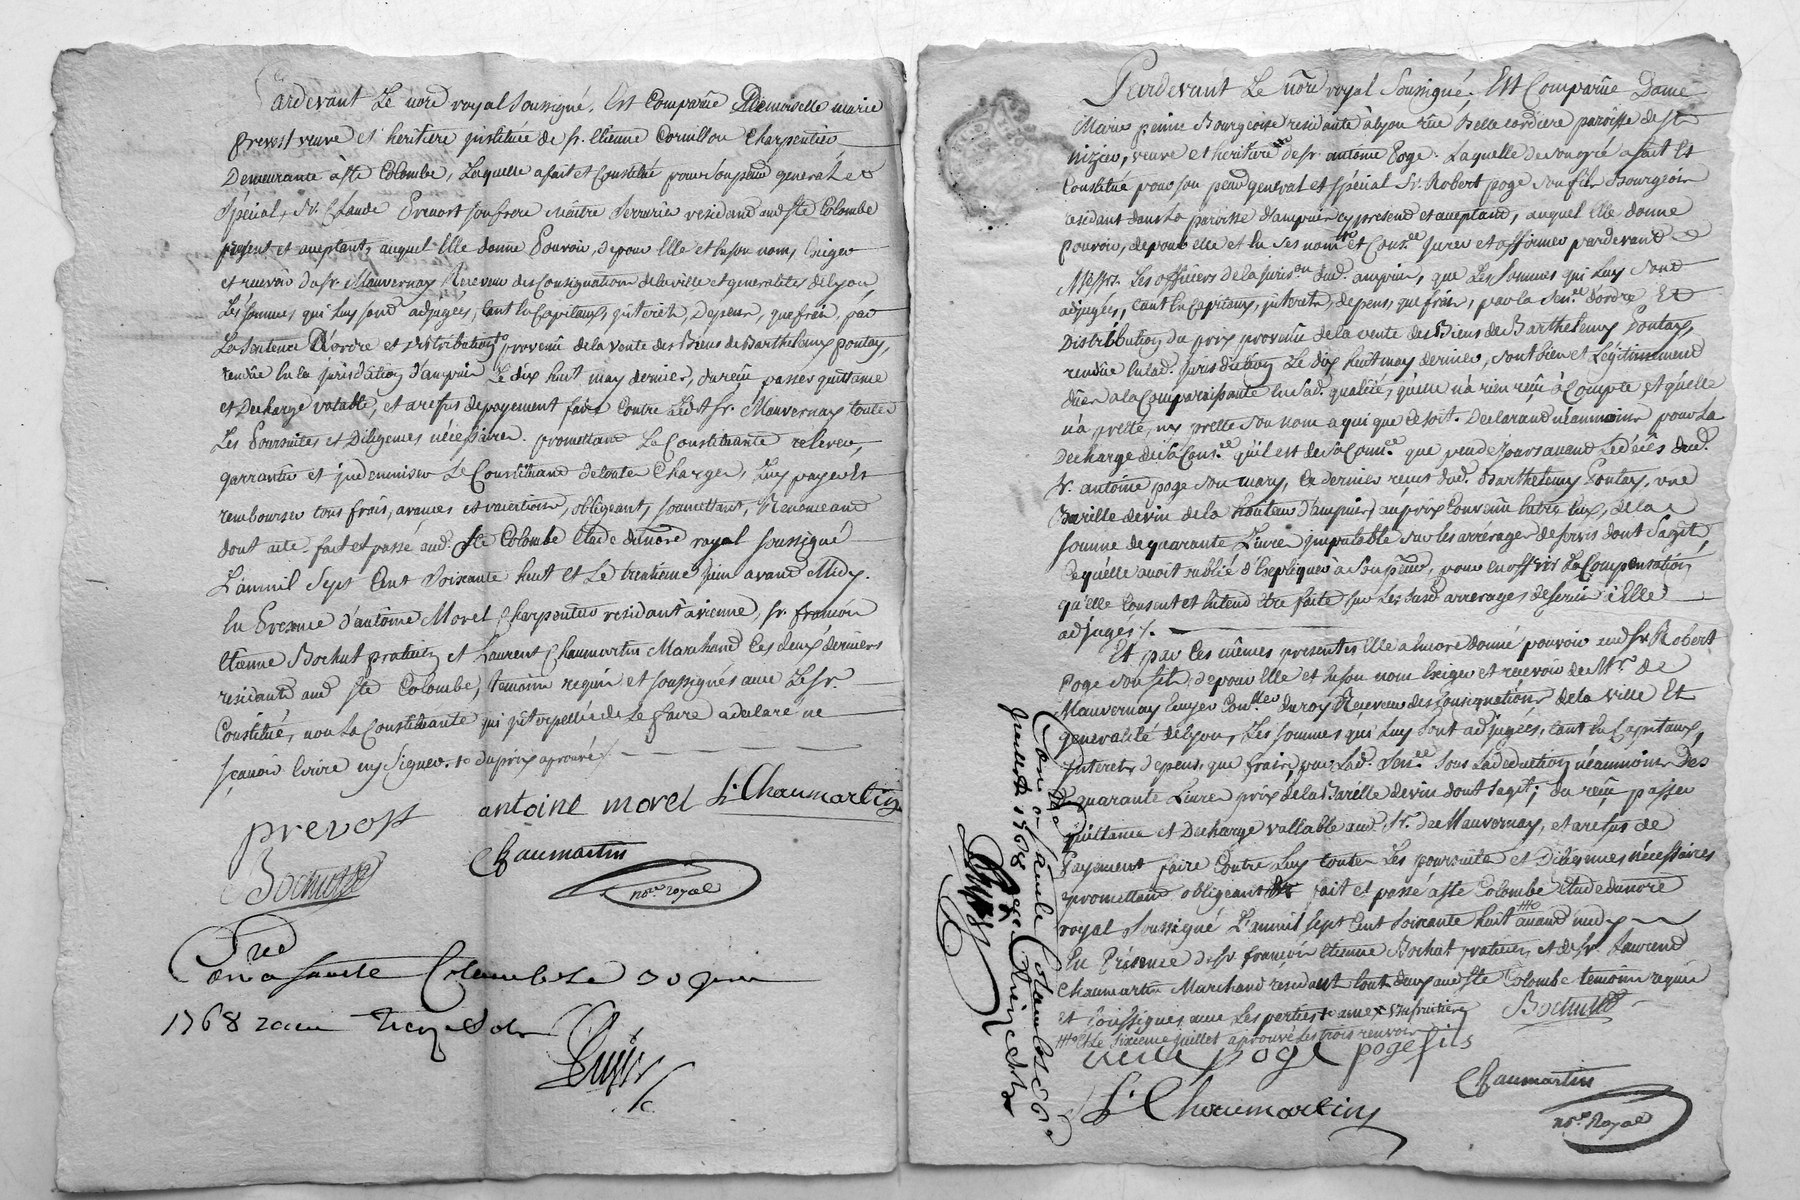 Pardevant Le nore royal soussigné, Est Comparûe Demoiselle marie
prevost veuve et heritiere instituée de sr. Etienne Cornillon Charpentier
Demeurante à ste Colombe, Laquelle a fait et Constitué pour son general et
spécial, sr. Claude Prevost son frere Maître Serrurier residant aud ste Colombe
présent et aceptant, auquel Elle donne Pouvoir, de pour Elle et En son nom, Exiger
et recevoir du sr. Mauvernay Receveur des Consignations de la ville et generalités de Lyon
Les sommes qui Luy sont adjugées, tant En Capitaux, intérêts, Depens, que frais, par
La Sentence D'ordre et distribution provenû de la vente des Biens de Barthelemy pontay,
rendüe En la jurisdiction d'ampuis Le dix huit may dernier, du reçû passer quittance
et Decharge valable, et a refus de payement faire Contre Ledt sr. Mauvernay toutes
Les Poursuites et Diligences nécéssaires. promettant La Constituante relever,
garrantir et indemniser Le Constitué de toute Charges, Luy payer et
rembourser tous frais, avances et vacations, obligeant, soumettant, Renonceant
dont acte. fait et passé aud. ste Colombe Etude du nore royal soussigné
L'an mil sept Cent soixante huit et Le trentieme juin avant Midy.
En Presence d'antoine Morel Charpentier residant à vienne, sr. françois
Etienne Bochut praticien et Laurent Chaumartin Marchand Ces deux derniers
residants aud ste Colombe, temoins requis et soussignés avec Le sr.
Constitué, non La Constituante qui interpellée de Le faire a declaré ne
sçavoir Ecrire ny signer. du prix aprouvé
prevost
antoine morel L. Chaumartin
Chaumartin
Bochut
nore royal
Con a sainte Colombe le 30 juin
1768 recu treize sols
Pardevant Le nore royal Soussigné. Est Comparûe Dame
Marie perin Bourgeoise residante à Lyon rüe Belle cordiere paroisse de st
nizier, veuve et heritiere de sr. antoine Poge. Laquelle de son gré a fait Et
Constitué pour son general et spécial sr. Robert poge son fils Bourgeois
residant dans La paroisse d'ampuis cy present et aceptant, auquel Elle donne
Pouvoir, de pour elle et En ses nom et Jurer et affirmer pardevant
Messrs. Les officiers de la jurison dud. ampuis, que Les Sommes qui Luy sont
adjugées, tant En Capitaux, interets, depens, que frais, par la Sence d'ordre Et
Distribution du prix provenû de la vente des Biens de Barthelemy Pontay,
rendüe En lad. jurisdiction Le dix huit may dernier, sont bien et Legitimement
dües a la Comparaissante En sad. qualité, quelle n'a rien reçû à Compte, et quelle
n'a preté, ny prette son nom a qui que Ce soit. Declarant néanmoins pour La
Decharge de sa qu'il est de sa que peu de jours avant Le décés dud.
sr. antoine poge son mary, Ce dernier reçut dud. Barthelemy Pontay, une
Barille de vin de la hauteur d'ampuis, au prix Convenû Entre Eux, de la
somme de quarante Livre imputable sur les arrérages de servis dont s'agit,
Ce quélle avoit oublié d'Expliquer à son pour En offrir La Compensation,
qu'elle Consent et Entend être faite sur Les susd arrerages de servis à Elle
adjugés /.
Et par Ces mêmes presentes Elle a Encore donné pouvoir aud sr. Robert
Poge son fils, de pour Elle et En son nom Exiger et recevoir de Mr. de
Mauvernay Ecuyer Conller du roy Receveur des Consignations de la ville Et
generalité de Lyon, Les sommes qui Luy sont adjugées, tant En Capitaux,
interets, depens, que frais, par Lad. Sence. sous La deduction néanmoins Des
quarante Livre prix de la Barille de vin dont s'agit; du reçû passer
quittance et Decharge vallable aud. sr. de Mauvernay, et a refus de
Payement faire Contre Luy toutes Les poursuites et Diligences nécéssaires
promettant obligeant fait et passé à ste Colombe Etude du nore
royal Soussigné L'an mil sept Cent soixante huit avant midy
En Présence de sr. françois Etienne Bochut praticien et de sr. Laurend
Chaumartin Marchand residant tout deux aud ste Colombe temoins requis
et soussignés avec Les parties
et Le sixieme juillet aprouvé Les trois renvois
Bochut
veuve poge poge fils
Chaumartin
L. Chaumartin
nore Royal
Con a sainte Colombe le 6
juillet 1768 recu treize sols